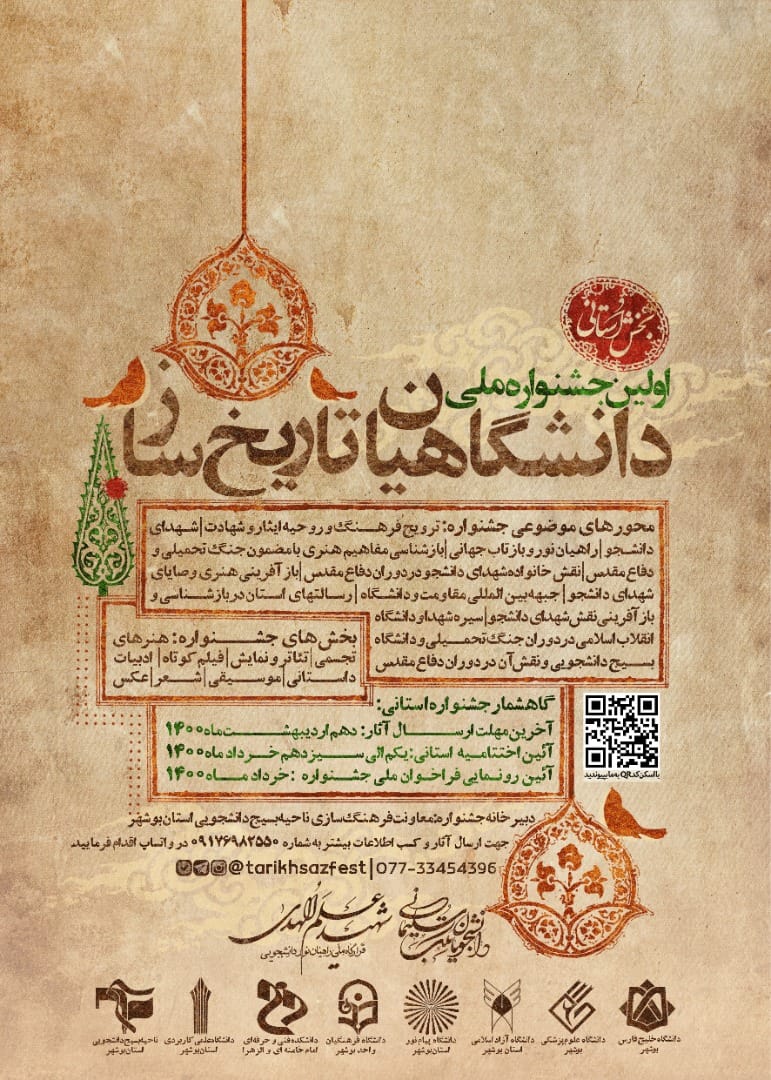 بخش استانی
اولین جشنواره ملی
دانشگاهیان تاریخ ساز
محورهای موضوعی جشنواره: ترویج فرهنگ و روحیه ایثار و شهادت | شهدای
دانشجو | راهیان نور و بازتاب جهانی | بازشناسی مفاهیم هنری با مضمون جنگ تحمیلی و
دفاع مقدس | نقش خانواده شهدای دانشجو در دوران دفاع مقدس | بازآفرینی هنری وصایای
شهدای دانشجو | جبهه بین المللی مقاومت و دانشگاه | رسالتهای استان در بازشناسی و
بازآفرینی نقش شهدای دانشجو | سیره شهدا و دانشگاه
انقلاب اسلامی در دوران جنگ تحمیلی و دانشگاه
بسیج دانشجویی و نقش آن در دوران دفاع مقدس
بخش های جشنواره: هنرهای
تجسمی | تئاتر و نمایش | فیلم کوتاه | ادبیات
داستانی | موسیقی | شعر | عکس
گاهشمار جشنواره استانی:
آخرین مهلت ارسال آثار: دهم اردیبهشت ماه ۱۴۰۰
آئین اختتامیه استانی: یکم الی سیزدهم خرداد ماه ۱۴۰۰
آئین رونمایی فراخوان ملی جشنواره : خرداد ماه ۱۴۰۰
با اسکن کد QR به ما بپیوندید
دبیرخانه جشنواره: معاونت فرهنگ سازی ناحیه بسیج دانشجویی استان بوشهر
جهت ارسال آثار و کسب اطلاعات بیشتر به شماره ۰۹۱۷۶۹۸۲۵۵۰ در واتساپ اقدام فرمایید.
@tarikhsazfest | 077-33454396
دانشجویان مکتب سلیمانی
شهید علم الهدی
قرارگاه ملی راهیان نور دانشجویی
دانشگاه خلیج فارس
بوشهر
دانشگاه علوم پزشکی
بوشهر
دانشگاه آزاد اسلامی
استان بوشهر
دانشگاه پیام نور
استان بوشهر
دانشگاه فرهنگیان
واحد بوشهر
دانشکده فنی و حرفه ای
امام خامنه ای و الزهرا
دانشگاه علمی کاربردی
استان بوشهر
ناحیه بسیج دانشجویی
استان بوشهر